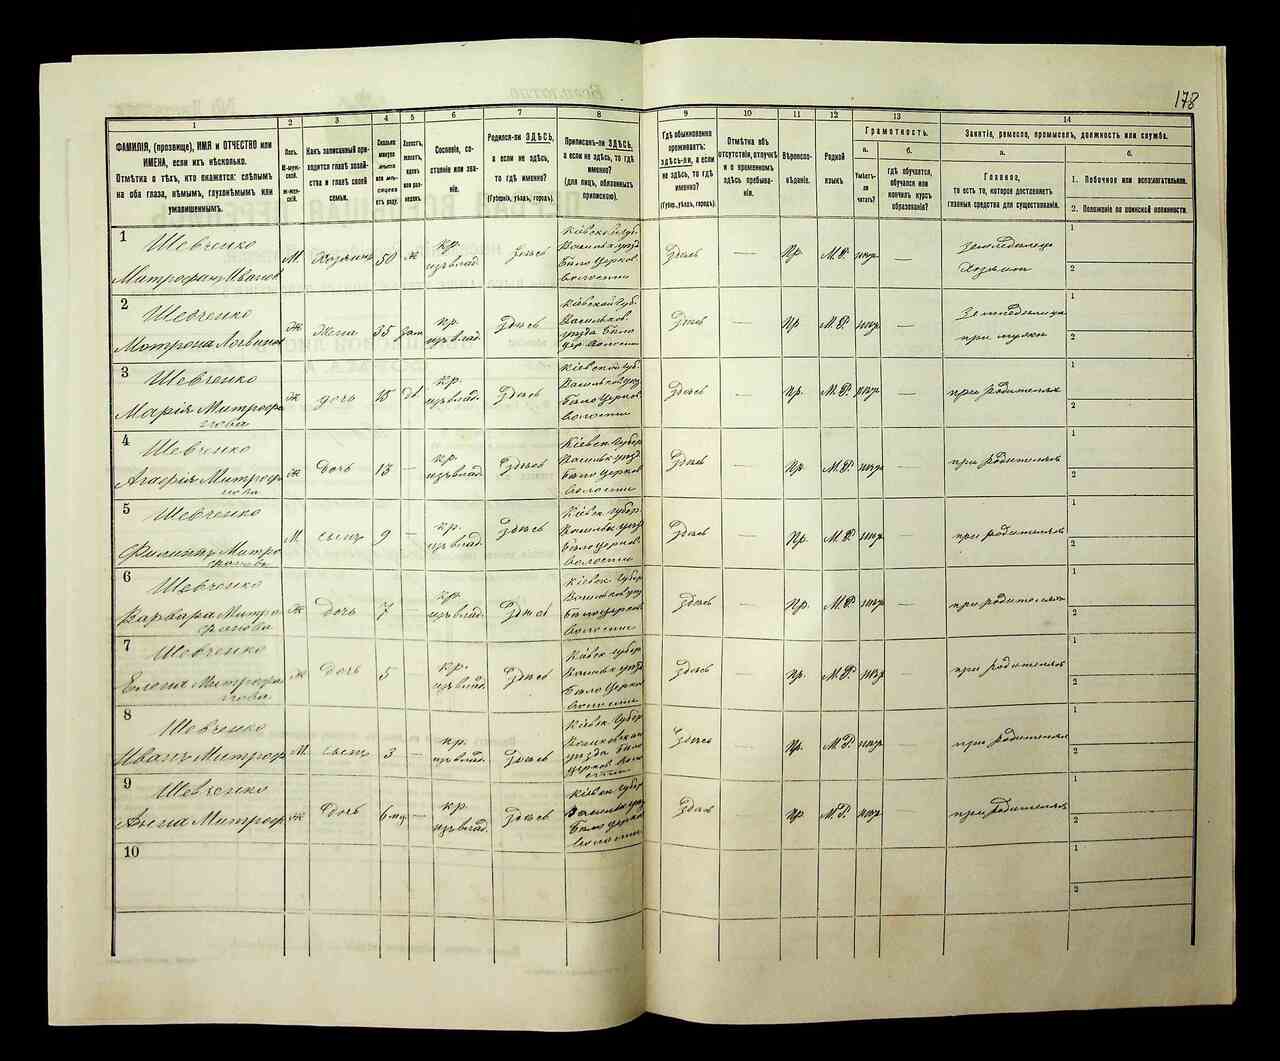 178
1
2
3
4
5
6
7
8
9
10
11
12
13
14
ФАМИЛІЯ, (прозвище), ИМЯ и ОТЧЕСТВО или
ИМЕНА, если ихъ нѣсколько.
Отмѣтка о тѣхъ, кто окажется: слѣпымъ
на оба глаза, нѣмымъ, глухонѣмымъ или
умалишеннымъ.
Полъ.
М-мужской.
Ж-женскій.
Какъ записанный приходится главѣ хозяйства и главѣ своей семьи.
Сколько минуло лѣтъ или мѣсяцевъ отъ роду.
Холостъ, женатъ, вдовъ или разведенъ.
Сословіе, состояніе или званіе.
Родился-ли ЗДѢСЬ,
а если не здѣсь,
то гдѣ именно?
(Губернія, уѣздъ, городъ).
Приписанъ-ли ЗДѢСЬ,
а если не здѣсь, то гдѣ
именно?
(для лицъ, обязанныхъ
припискою).
Гдѣ обыкновенно
проживаетъ:
здѣсь-ли, а если
не здѣсь, то гдѣ
именно?
(Губер., уѣздъ, городъ).
Отмѣтка объ
отсутствіи, отлучкѣ
и о временномъ
здѣсь пребываніи.
Вѣроисповѣданіе.
Родной
языкъ
Грамотность.
а.
Умѣетъ-ли
читать?
б.
гдѣ обучается,
обучался или
кончилъ курсъ
образованія?
Занятіе, ремесло, промыселъ, должность или служба.
а.
Главное,
то есть то, которое доставляетъ
главныя средства для существованія.
б.
1. Побочное или вспомогательное.
2. Положеніе по воинской повинности.
1
Шевченко
Митрофанъ Иванов
М.
Хозяинъ
50
ж
кр.
изъ влад.
здѣсь
Кіевской губ
Васильк уѣзд
Бѣло Церков
волости
Здѣсь
—
Пр.
М.Р.
негр.
—
земледѣлецъ
хозяинъ
1
2
2
Шевченко
Мотрона Логвинов
Ж
Жена
35
зам
кр.
изъ влад.
здѣсь
Кіевской губ.
Васильков.
уѣзда Бѣло
цер. волости
Здѣсь
—
Пр
М.Р.
негр.
—
земледѣлица
при мужѣ
1
2
3
Шевченко
Марія Митрофа
нова
ж
дочь
15
дѣ
кр.
изъ влад.
Здѣсь
Кіевской губ.
Васильков уѣз
Бѣло Церков
волости
Здѣсь
—
Пр.
М.Р.
негр.
—
при родителях
1
2
4
Шевченко
Агафія Митроф
нова
ж
дочь
13
—
кр.
изъ влад.
Здѣсь
Кіевск губер
Васильк уѣзд
Бѣло Церков
волости
Здѣсь
—
Пр.
М.Р.
негр.
—
при родителях
1
2
5
Шевченко
Филиппъ Митро
фанова
М
сынъ
9
—
кр.
изъ влад.
Здѣсь
Кіевск. губер
Васильк уѣзд
Бѣло церков
волости
Здѣсь
—
Пр.
М.Р.
негр.
—
при родителях
1
2
6
Шевченко
Варвара Митро
фанова
Ж
дочь
7
—
кр.
изъ влад.
Здѣсь
Кіевск губер
Васильк уѣз
Бѣло церков
волости
Здѣсь
—
Пр.
М.Р.
негр.
—
при родителях
1
2
7
Шевченко
Елена Митрофа
нова
ж
дочь
5
—
кр.
изъ влад.
Здѣсь
Кіевск губер
Васильк уѣзд
Бѣло Церков
волости
Здѣсь
—
Пр.
М.Р.
негр.
—
при родителях
1
2
8
Шевченко
Иванъ Митроф
М
сынъ
3
—
кр.
изъ влад.
Здѣсь
Кіевск губер
уѣзда Бѣло
церков воло
сти
Здѣсь
—
Пр.
М.Р.
негр.
—
при родителях
1
2
9
Шевченко
Анна Митроф
ж
дочь
6 мц
—
кр.
изъ влад.
Здѣсь
Кіевск губер
Васильк уѣзд
Бѣло Церков
волости
Здѣсь
—
Пр.
М.Р.
негр.
—
при родителях
1
2
10
1
2